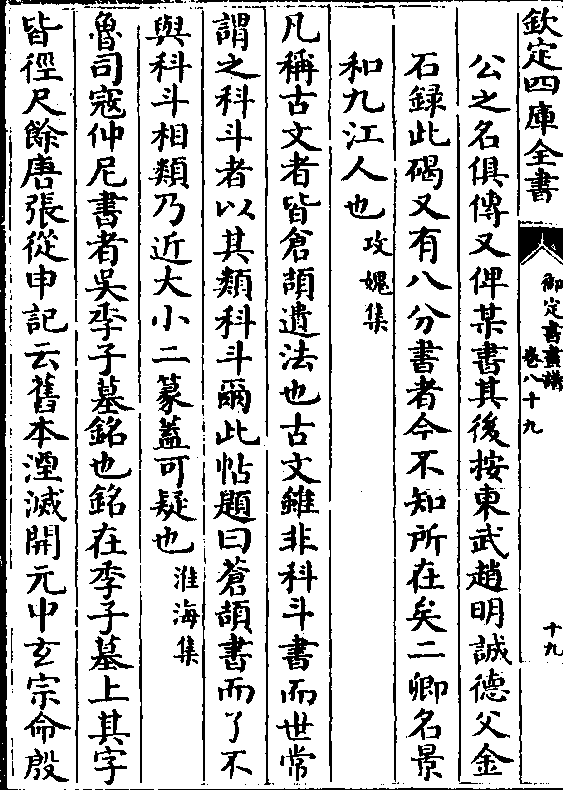 欽定四庫全書
御定書畫譜
卷八十九
十九
公之名俱傳又俾某書其後按東武趙明誠德父金
石録此碣又有八分書者今不知所在矣二卿名景
和九江人也攻媿集
凡稱古文者皆倉頡遺法也古文雖非科斗書而世常
謂之科斗者以其類科斗爾此帖題曰蒼頡書而了不
與科斗相類乃近大小二篆蓋可疑也淮海集
魯司寇仲尼書者吳季子墓銘也銘在季子墓上其字
皆徑尺餘唐張從申記云舊本湮滅開元中玄宗命殷